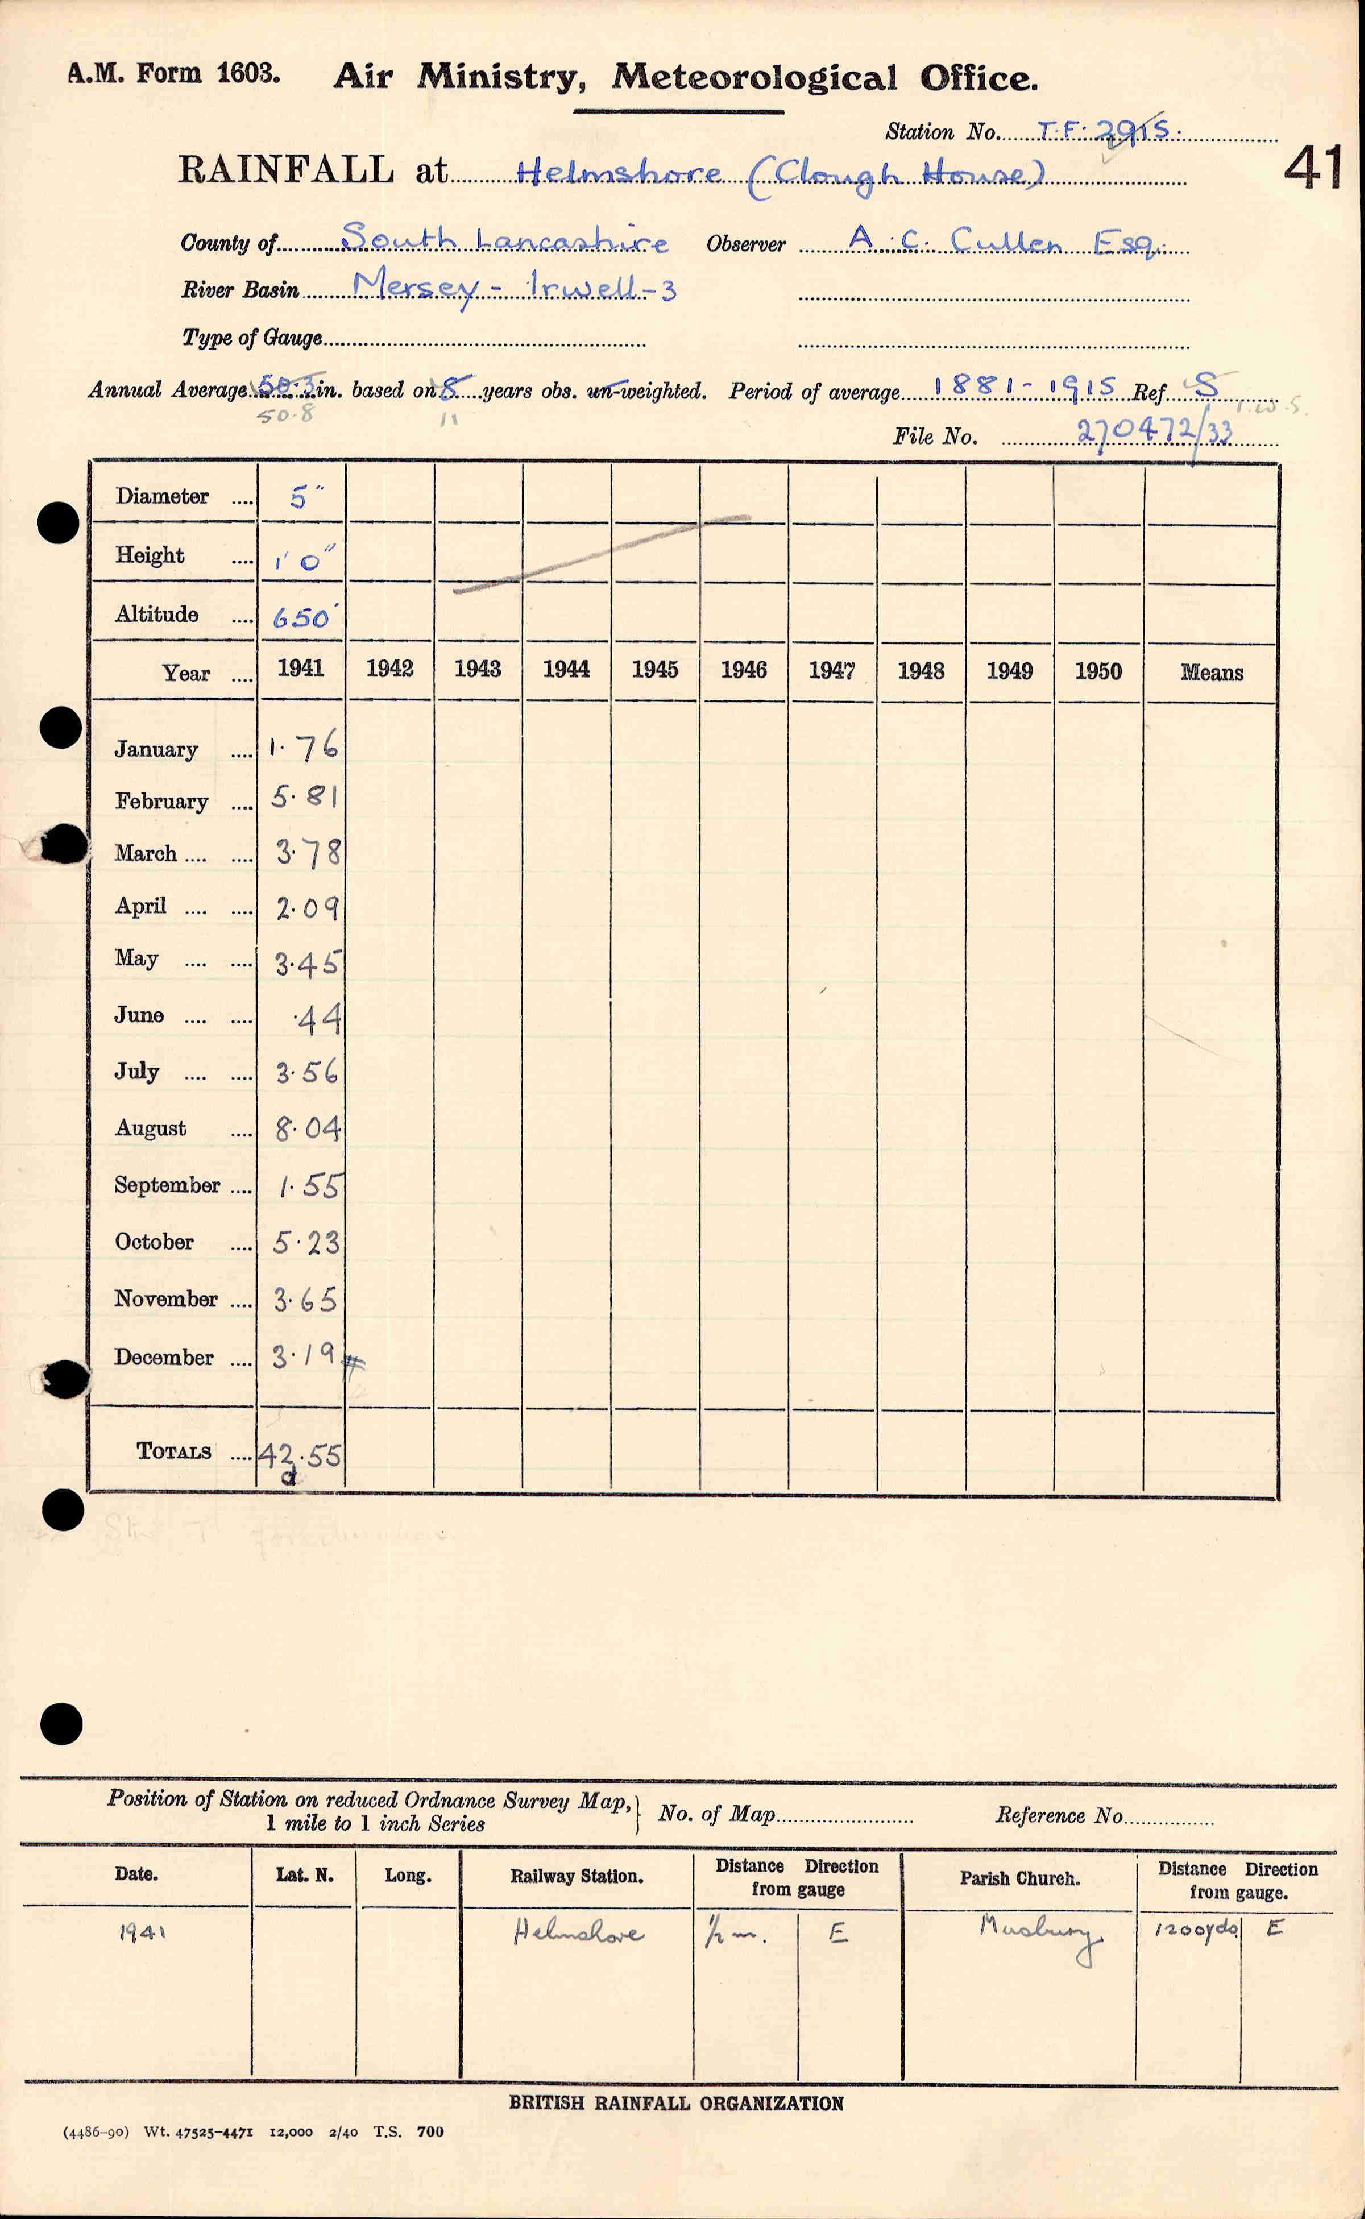 A.M. Form 1603. Air Ministry, Meteorological Office.
Station No. T.F. 2915.
41
RAINFALL at Helmshore (Clough House)
County of South Lancashire Observer A. C. Cullen Esq.
River Basin Mersey - Irwell-3
Type of Gauge
Annual Average 50.3 in. based on 8 years obs. un-weighted. Period of average 1881-1915 Ref S
50.8 11 T.W.S.
File No. 270472/33
Diameter .... 5"
Height .... 1' 0"
Altitude .... 650'
Year .... 1941 1942 1943 1944 1945 1946 1947 1948 1949 1950 Means
January .... 1.76
February .... 5.81
March .... .... 3.78
April .... .... 2.09
May .... .... 3.45
June .... .... .44
July .... .... 3.56
August .... 8.04
September .... 1.55
October .... 5.23
November .... 3.65
December .... 3.19 #
TOTALS .... 42.55
d
Position of Station on reduced Ordnance Survey Map, } No. of Map Reference No.
1 mile to 1 inch Series
Date. Lat. N. Long. Railway Station. Distance Direction from gauge Parish Church. Distance Direction from gauge.
1941 Helmshore 1/2 m. E Musbury 1200yds E
BRITISH RAINFALL ORGANIZATION
(4486-90) Wt. 47525-4471 12,000 2/40 T.S. 700